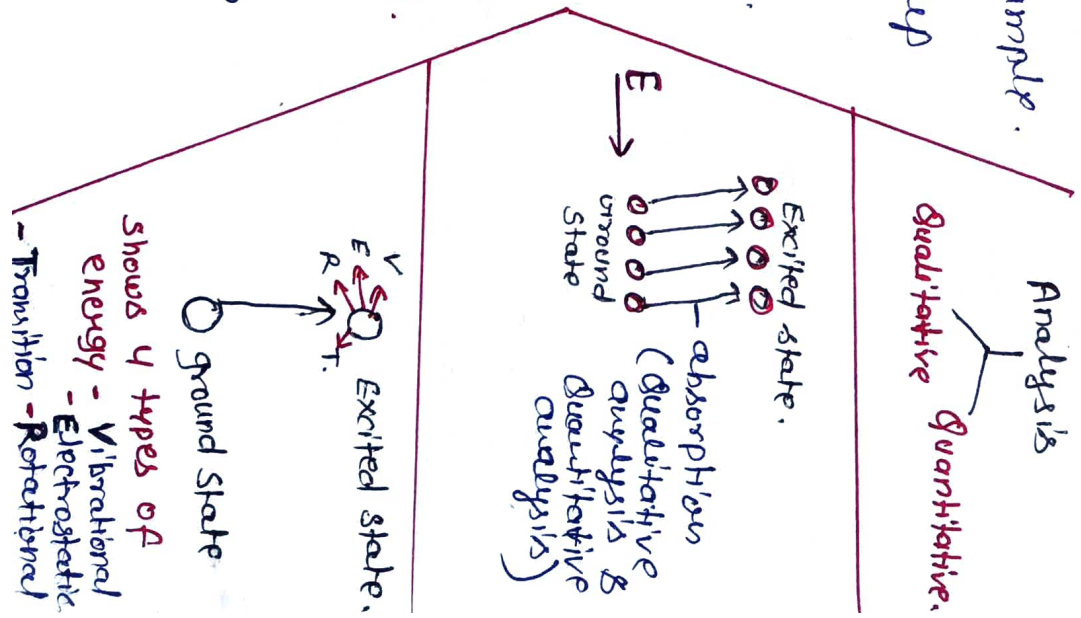 imple.
Analysis
Qualitative Quantitative.
E
Excited state.
Ground
State
absorption
(Qualitative
analysis &
Quantitative
analysis)
V
E
R
T.
Excited state.
ground state
Shows 4 types of
energy - Vibrational
- Electrostatic
- Transition - Rotational